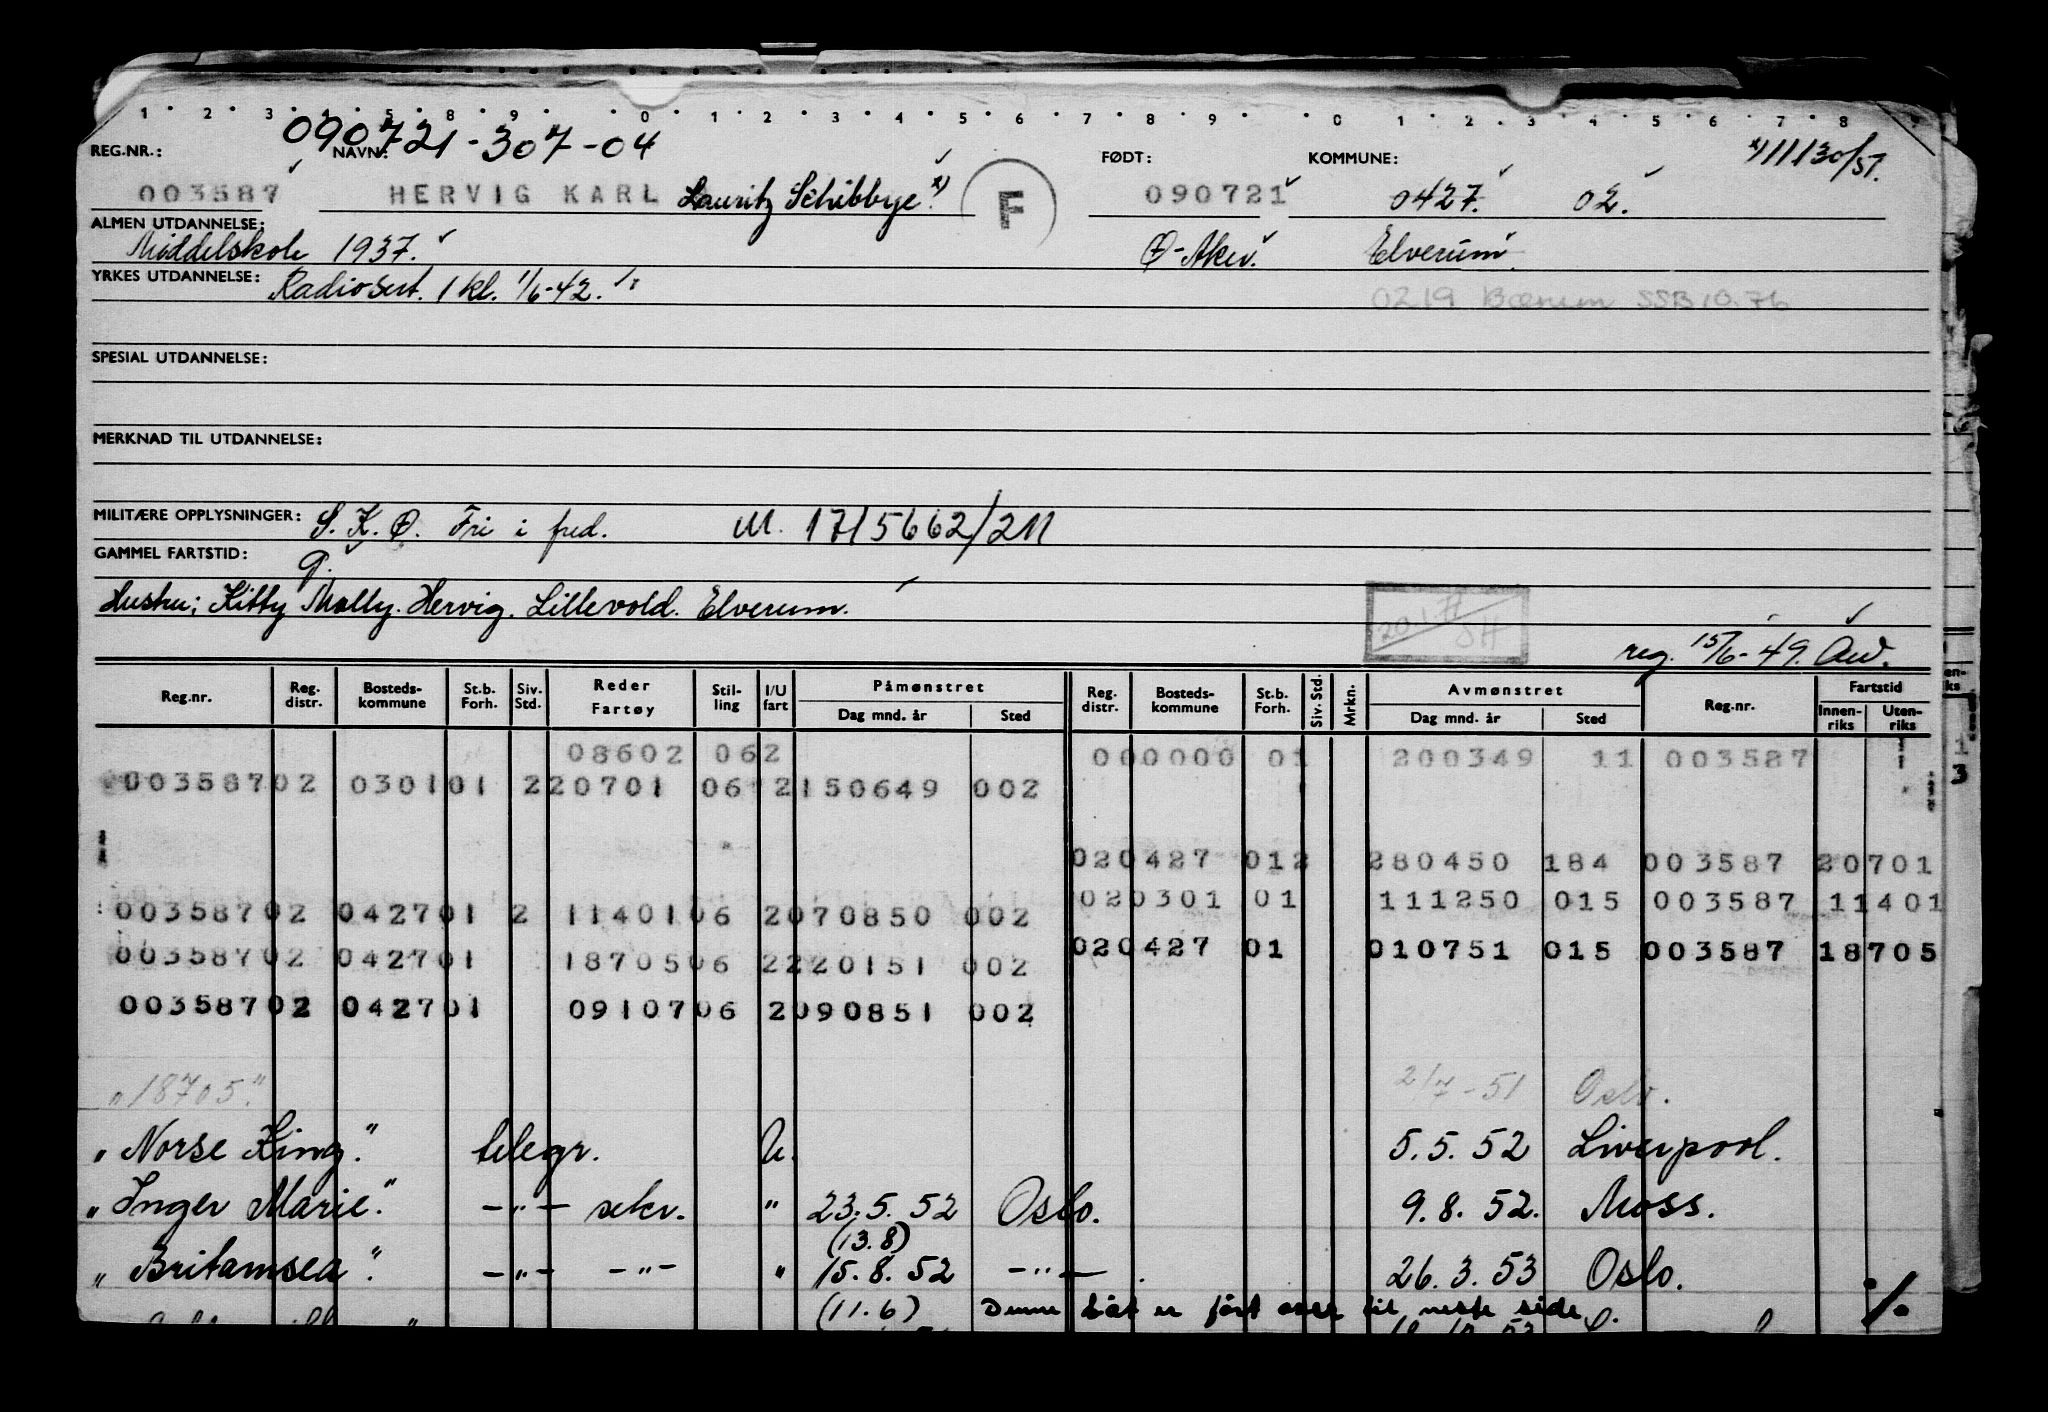 1 2 3 4 5 8 9 0 1 2 3 4 5 6 7 8 9 0 1 2 3 4 5 6 7 8
090721-307-04
REG.NR.: NAVN: FØDT: KOMMUNE: x) 11130/57.
003587 HERVIG KARL Lauritz Schibbye. x) F 090721 0427. 02.
ALMEN UTDANNELSE: Middelskole 1937. Ø-Aker. Elverum.
YRKES UTDANNELSE: Radiosert. 1 kl. 1/6-42.
0219 Bærum SSB 10.76
SPESIAL UTDANNELSE:
MERKNAD TIL UTDANNELSE:
MILITÆRE OPPLYSNINGER: S.K.Ø. Fri i fred. M. 1715662/211
GAMMEL FARTSTID: 9.
Hustru; Kitty Molly Hervig. Lillevold. Elverum.
reg. 15/6-49. Aw.
Reg.nr. Reg. distr. Bosteds- kommune St.b. Forh. Siv. Std. Reder Fartøy Stil- ling I/U fart Påmønstret Dag mnd. år Sted Reg. distr. Bosteds- kommune St.b. Forh. Siv. Std. Mrkn. Avmønstret Dag mnd. år Sted Reg.nr. Fartstid Innen- riks Uten- riks
08602 062 000000 01 200349 11 003587
00358702 030101 220701 06 2150649 002
020427 012 280450 184 003587 20701
00358702 042701 2 1140106 2070850 002 020301 01 111250 015 003587 11401
00358702 042701 1870506 2220151 002 020427 01 010751 015 003587 18705
00358702 042701 0910706 2090851 002
"18705." 2/7-51 Oslo.
"Norse King." telegr. U. 5.5.52 Liverpool.
"Inger Marie." -"- sekr. " 23.5.52 Oslo. 9.8.52. Moss.
(13.8)
"Britamsea". -"- -"- " 15.8.52 -"- 26.3.53 Oslo.
(11.6) Denne båt er ført over til neste side. ./.